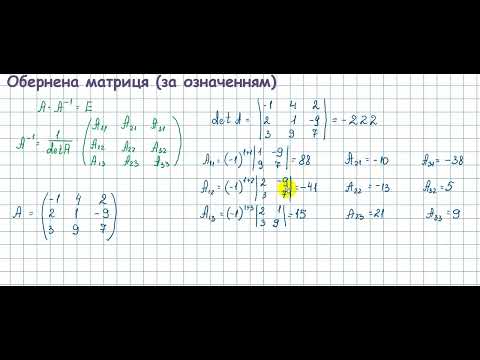 Обернена матриця (за означенням)
A · A⁻¹ = E
A⁻¹ = 1/detA (A₁₁ A₂₁ A₃₁
A₁₂ A₂₂ A₃₂
A₁₃ A₂₃ A₃₃)
A = (-1 4 2
2 1 -9
3 9 7)
det A = |-1 4 2
2 1 -9
3 9 7| = -222
A₁₁ = (-1)¹⁺¹ |1 -9
9 7| = 88 A₂₁ = -10 A₃₁ = -38
A₁₂ = (-1)¹⁺² |2 -9
3 7| = -41 A₂₂ = -13 A₃₂ = 5
A₁₃ = (-1)¹⁺³ |2 1
3 9| = 15 A₂₃ = 21 A₃₃ = 9